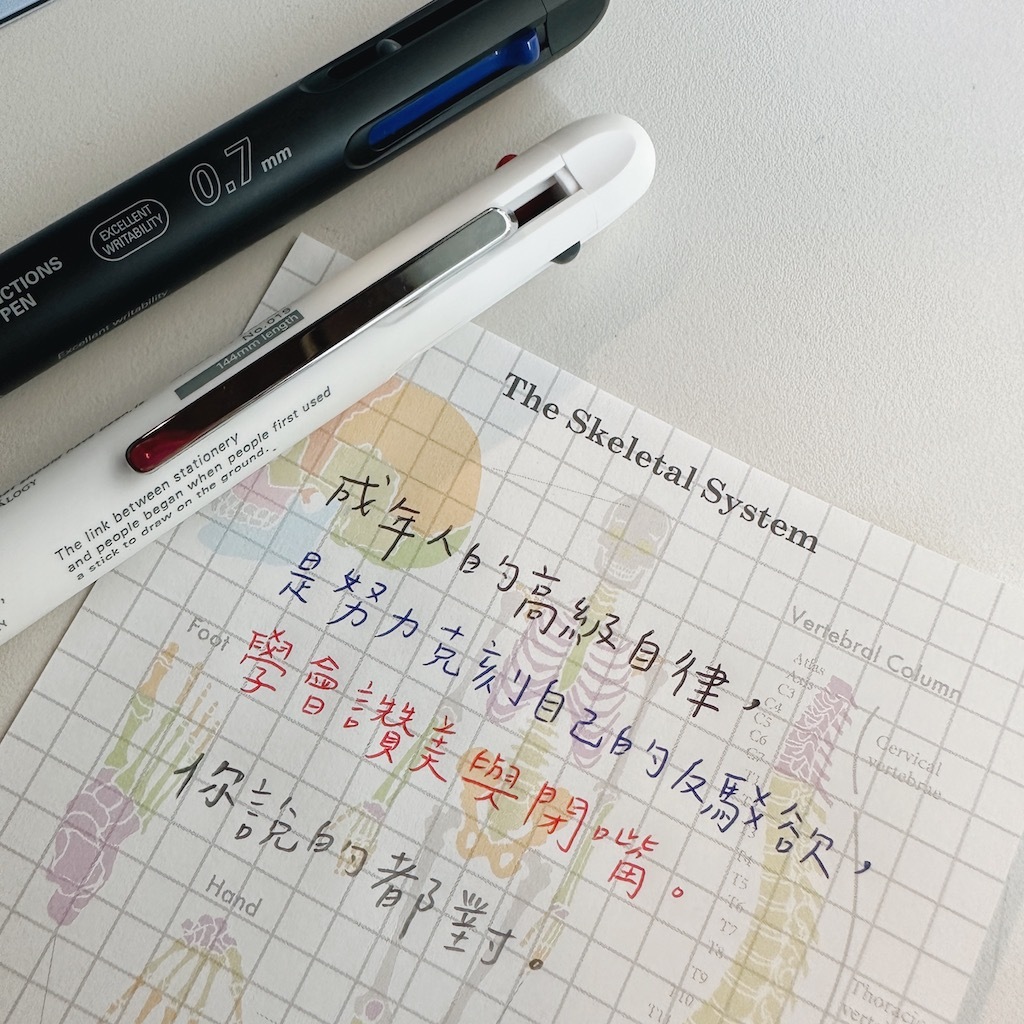 0.7 mm
EXCELLENT
WRITABILITY
CTIONS
PEN
Excellent writability
No.019
144mm length
ALOGY
The link between stationery
and people began when people first used
a stick to draw on the ground.
The Skeletal System
成年人的高級自律，
是努力克刻自己的反駁欲，
學會讚美與閉嘴。
你說的都對。
Foot
Hand
Vertebral Column
Atlas
Axis
C3
C4
C5
C6
C7
T1
Cervical
vertebrae
T4
T5
T6
T7
T8
T9
T10
T11
Thoracic